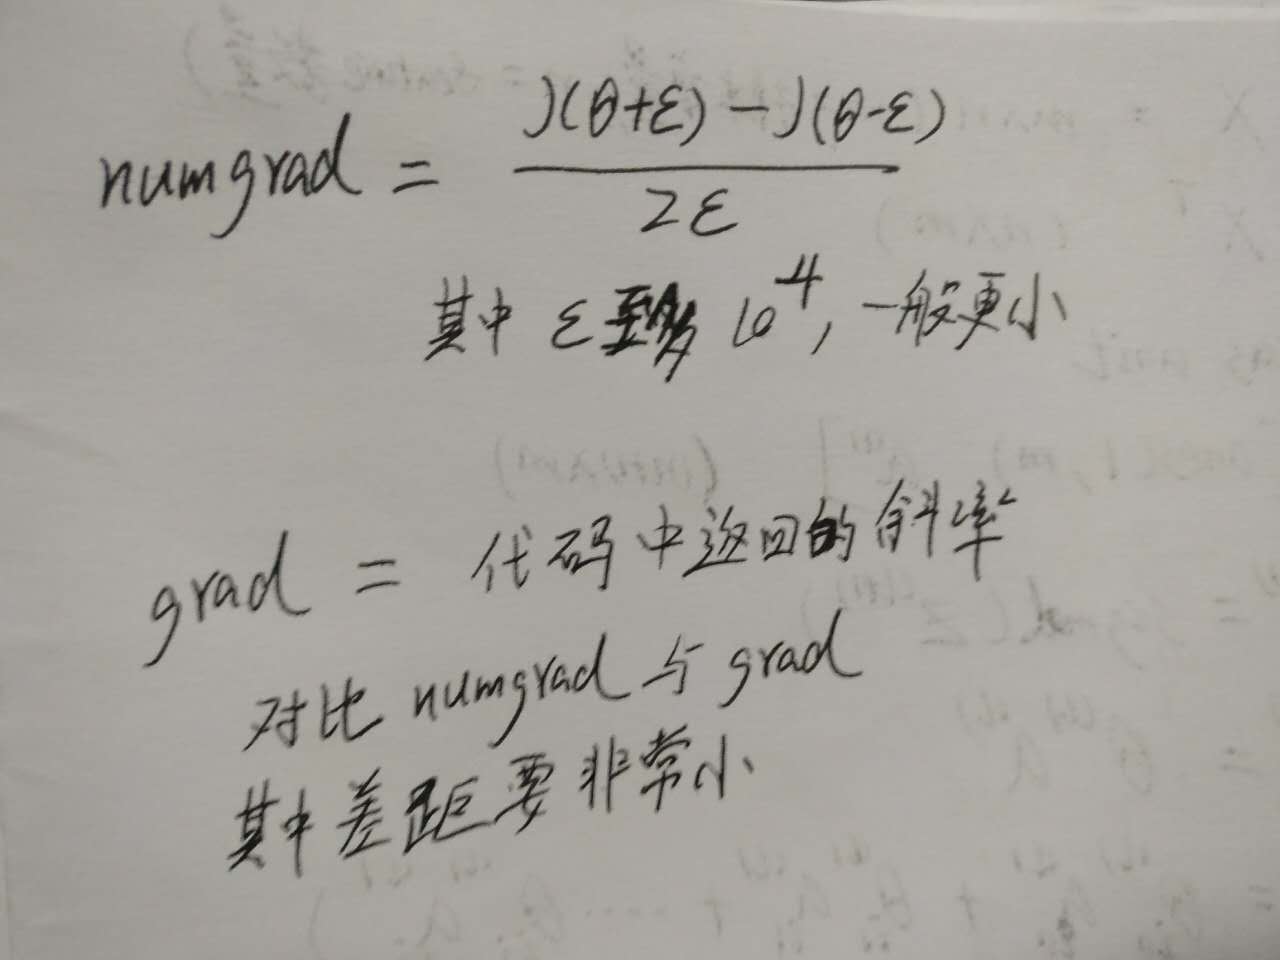 numgrad = \frac{J(θ+ε) - J(θ-ε)}{2ε}
其中 ε至多 10^{-4}, 一般更小
grad = 代码中返回的斜率
对比 numgrad 与 grad
其中差距要非常小